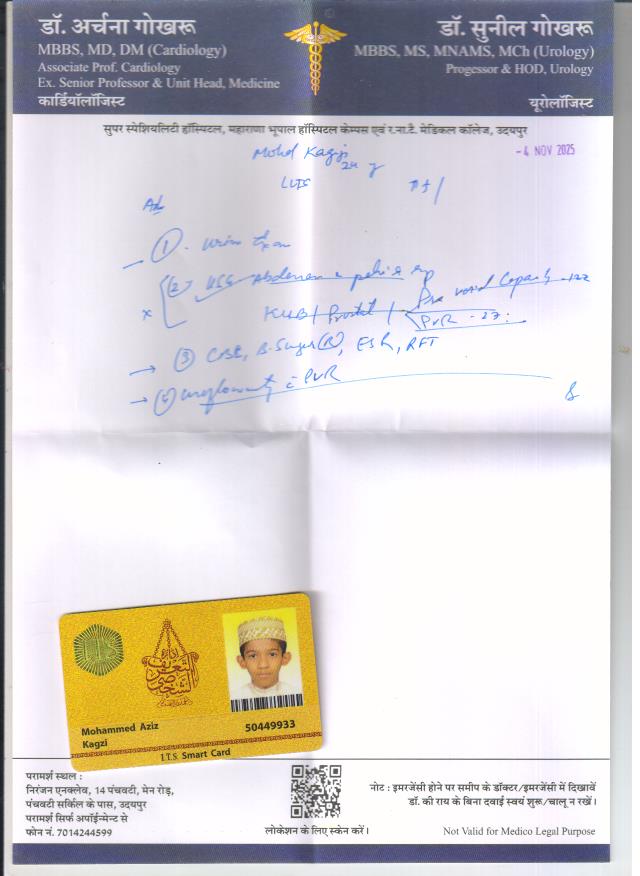 डॉ. अर्चना गोखरू
MBBS, MD, DM (Cardiology)
Associate Prof. Cardiology
Ex. Senior Professor & Unit Head, Medicine
कार्डियॉलॉजिस्ट
डॉ. सुनील गोखरू
MBBS, MS, MNAMS, MCh (Urology)
Progessor & HOD, Urology
यूरोलॉजिस्ट
सुपर स्पेशियलिटी हॉस्पिटल, महाराणा भूपाल हॉस्पिटल केम्पस एवं र.ना.टै. मेडिकल कॉलेज, उदयपुर
- 4 NOV 2025
Mohd Kagzi
LUTS
Adv
1. Urine Exam
2) USG Abdomen pelvis
KUB / Prostate / Pre void Capacity
PVR - 27
3) CBC, B. Sugar (R), ESR, RFT
Uroflowmetry c PVR
Mohammed Aziz
Kagzi
50449933
I.T.S. Smart Card
परामर्श स्थल :
निरंजन एनक्लेव, 14 पंचवटी, मेन रोड़,
पंचवटी सर्किल के पास, उदयपुर
परामर्श सिर्फ अपॉईन्मेन्ट से
फोन नं. 7014244599
लोकेशन के लिए स्केन करें।
नोट : इमरजेंसी होने पर समीप के डॉक्टर/इमरजेंसी में दिखावें
डॉ. की राय के बिना दवाई स्वयं शुरू/चालू न रखें।
Not Valid for Medico Legal Purpose